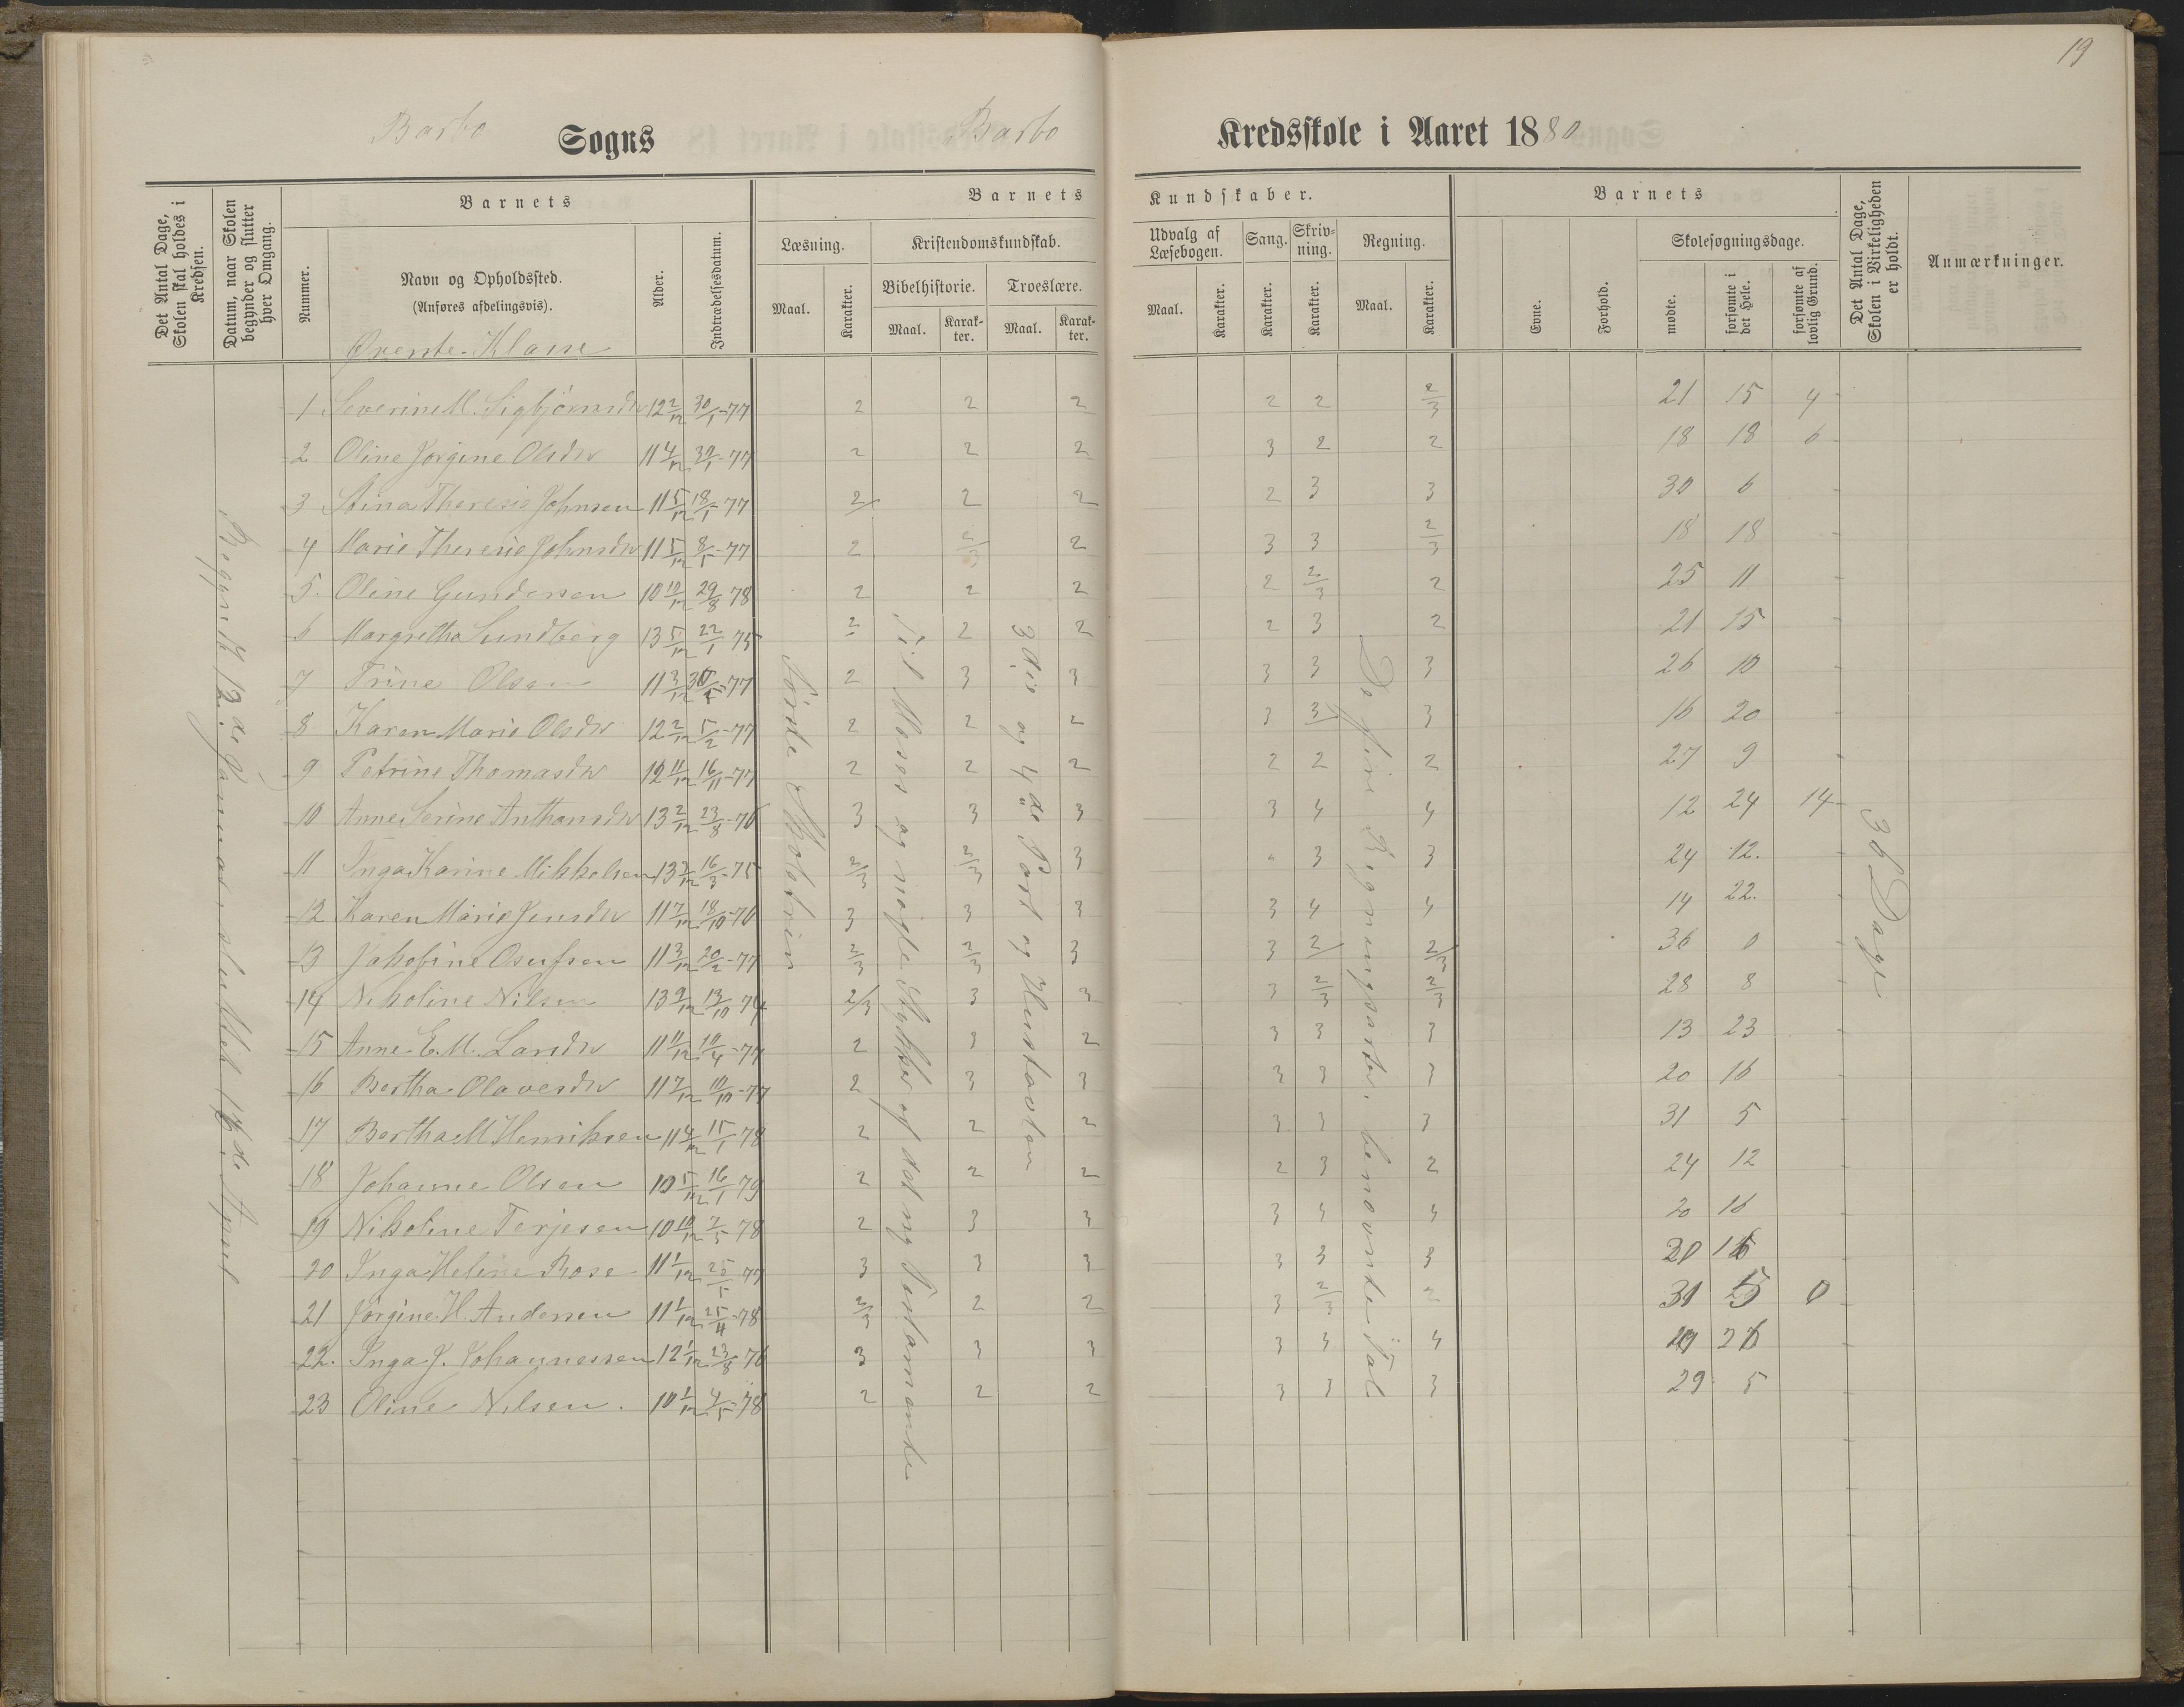 19
Barbo Sogns Barbo Kredsskole i Aaret 1880
Det Antal Dage, Skolen skal holdes i Kredsen.
Datum, naar Skolen begynder og slutter hver Omgang.
Barnets
Nummer.
Navn og Opholdssted.
(Anføres afdelingsvis).
Alder.
Indtrædelsesdatum.
Barnets Kundskaber.
Læsning.
Maal. Karakter.
Kristendomskundskab.
Bibelhistorie. Troeslære.
Maal. Karakter. Maal. Karakter.
Udvalg af Læsebogen.
Maal. Karakter.
Sang. Karakter.
Skrivning. Karakter.
Regning.
Maal. Karakter.
Barnets
Evne. Forhold.
Skolesøgningsdage.
mødte. forsømte i det Hele. forsømte af lovlig Grund.
Det Antal Dage, Skolen i Virkeligheden er holdt.
Anmærkninger.
Øverste Klasse
1 Severine M. Sigbjörnsdtr 12 2/12 30/1-77 2 2 2 2 2 2/3 21 15 4
2 Oline Jørgine Olsdtr 11 4/12 -77 2 2 2 3 2 2 18 18 6
3 Stina Theresie Johnsen 11 5/12 18/1-77 2 2 2 2 3 3 30 6
4 Marie Theresie Johnsdtr 11 5/12 8/5-77 2 2/3 2 3 3 2/3 18 18
5. Oline Gundersen 10 10/12 29/8 78 2 2 2 2 2/3 2 25 11
6 Margrethe Lundberg 13 5/12 22/1 75 2 2 2 2 3 2 21 15
7 Trine Olsen 11 3/12 -77 2 3 3 3 3 3 26 10
8 Karen Marie Olsdtr 12 2/12 5/2-77 2 2 2 3 3 3 16 20
9 Petrine Thomasdtr 12 11/12 16/11-77 2 2 2 2 2 2 27 9
10 Anne Serine Anthonsdtr 13 2/12 23/8-76 3 3 3 3 4 4 12 24 14
11 Inga Karine Mikkelsen 13 3/12 16/3-75 2/3 2/3 3 3 3 24 12.
12 Karen Marie Jensdtr 11 7/12 18/10-76 3 3 3 3 4 4 14 22.
13 Jakobine Osufsen 11 3/12 20/2-77 2/3 2/3 3 3 2 2/3 36 0
14 Nikoline Nilsen 13 9/12 /10 74 2/3 3 3 3 2/3 2/3 28 8
15 Anne E. M. Larsdtr 11 11/12 10/4-77 2 3 2 3 3 3 13 23
16 Bertha Olavesdtr 11 7/12 10/10-77 2 3 3 3 3 3 20 16
17 Bertha M Henriksen 11 4/12 15/1 78 2 2 2 3 3 3 31 5
18 Johanne Olsen 10 5/12 16/1 79 2 2 2 2 3 2 24 12
19 Nikoline Terjesen 10 10/12 7/5 78 2 3 3 3 4 4 20 16
20 Inga Heline Rose 11 1/12 77 3 3 3 3 3 3 20 16
21 Jørgine H. Andersen 11 1/12 25/4-78 2/3 2 2 3 2/3 2 31 5 0
22. Inga J. Johannessen 12 1/12 23/8 76 3 3 3 3 4 4
23 Oline Nilsen. 10 1/12 4/5-78 2 2 2 3 3 3 29 5
Til Moses og nogle Stykker af det ny Testamente
3die og 4de Part og Hustavlen
De fire Regningsarter i benævnte Tal
36 Dage